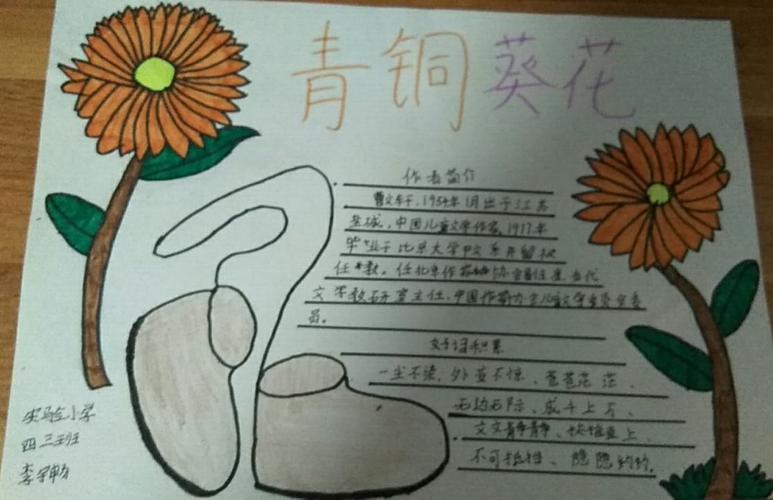 青铜葵花
作者简介
曹文轩,1954年1月出于江苏
盐城,中国儿童文学作家,1977年
毕业于北京大学中文系并留校
任教。任北京作家协会副主席、当代
文学教研室主任,中国作协儿童文学委员会委
员。
好词积累
一尘不染、外、不惊、茫茫、
无边无际、成千上万、
文文静静、
不可抵挡、隐隐约约。
实验小学
四三班
李